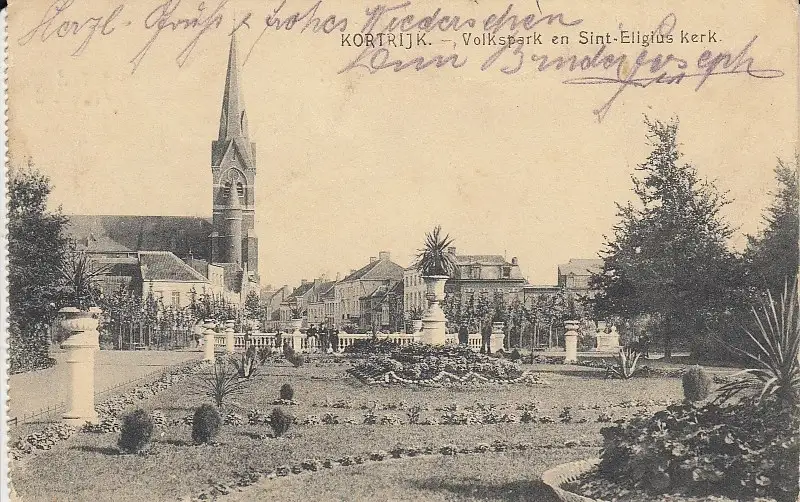 Herzl. Gruß & frohes Wiedersehen
KORTRIJK. — Volkspark en Sint-Eligius kerk.
Dein Bruder Joseph